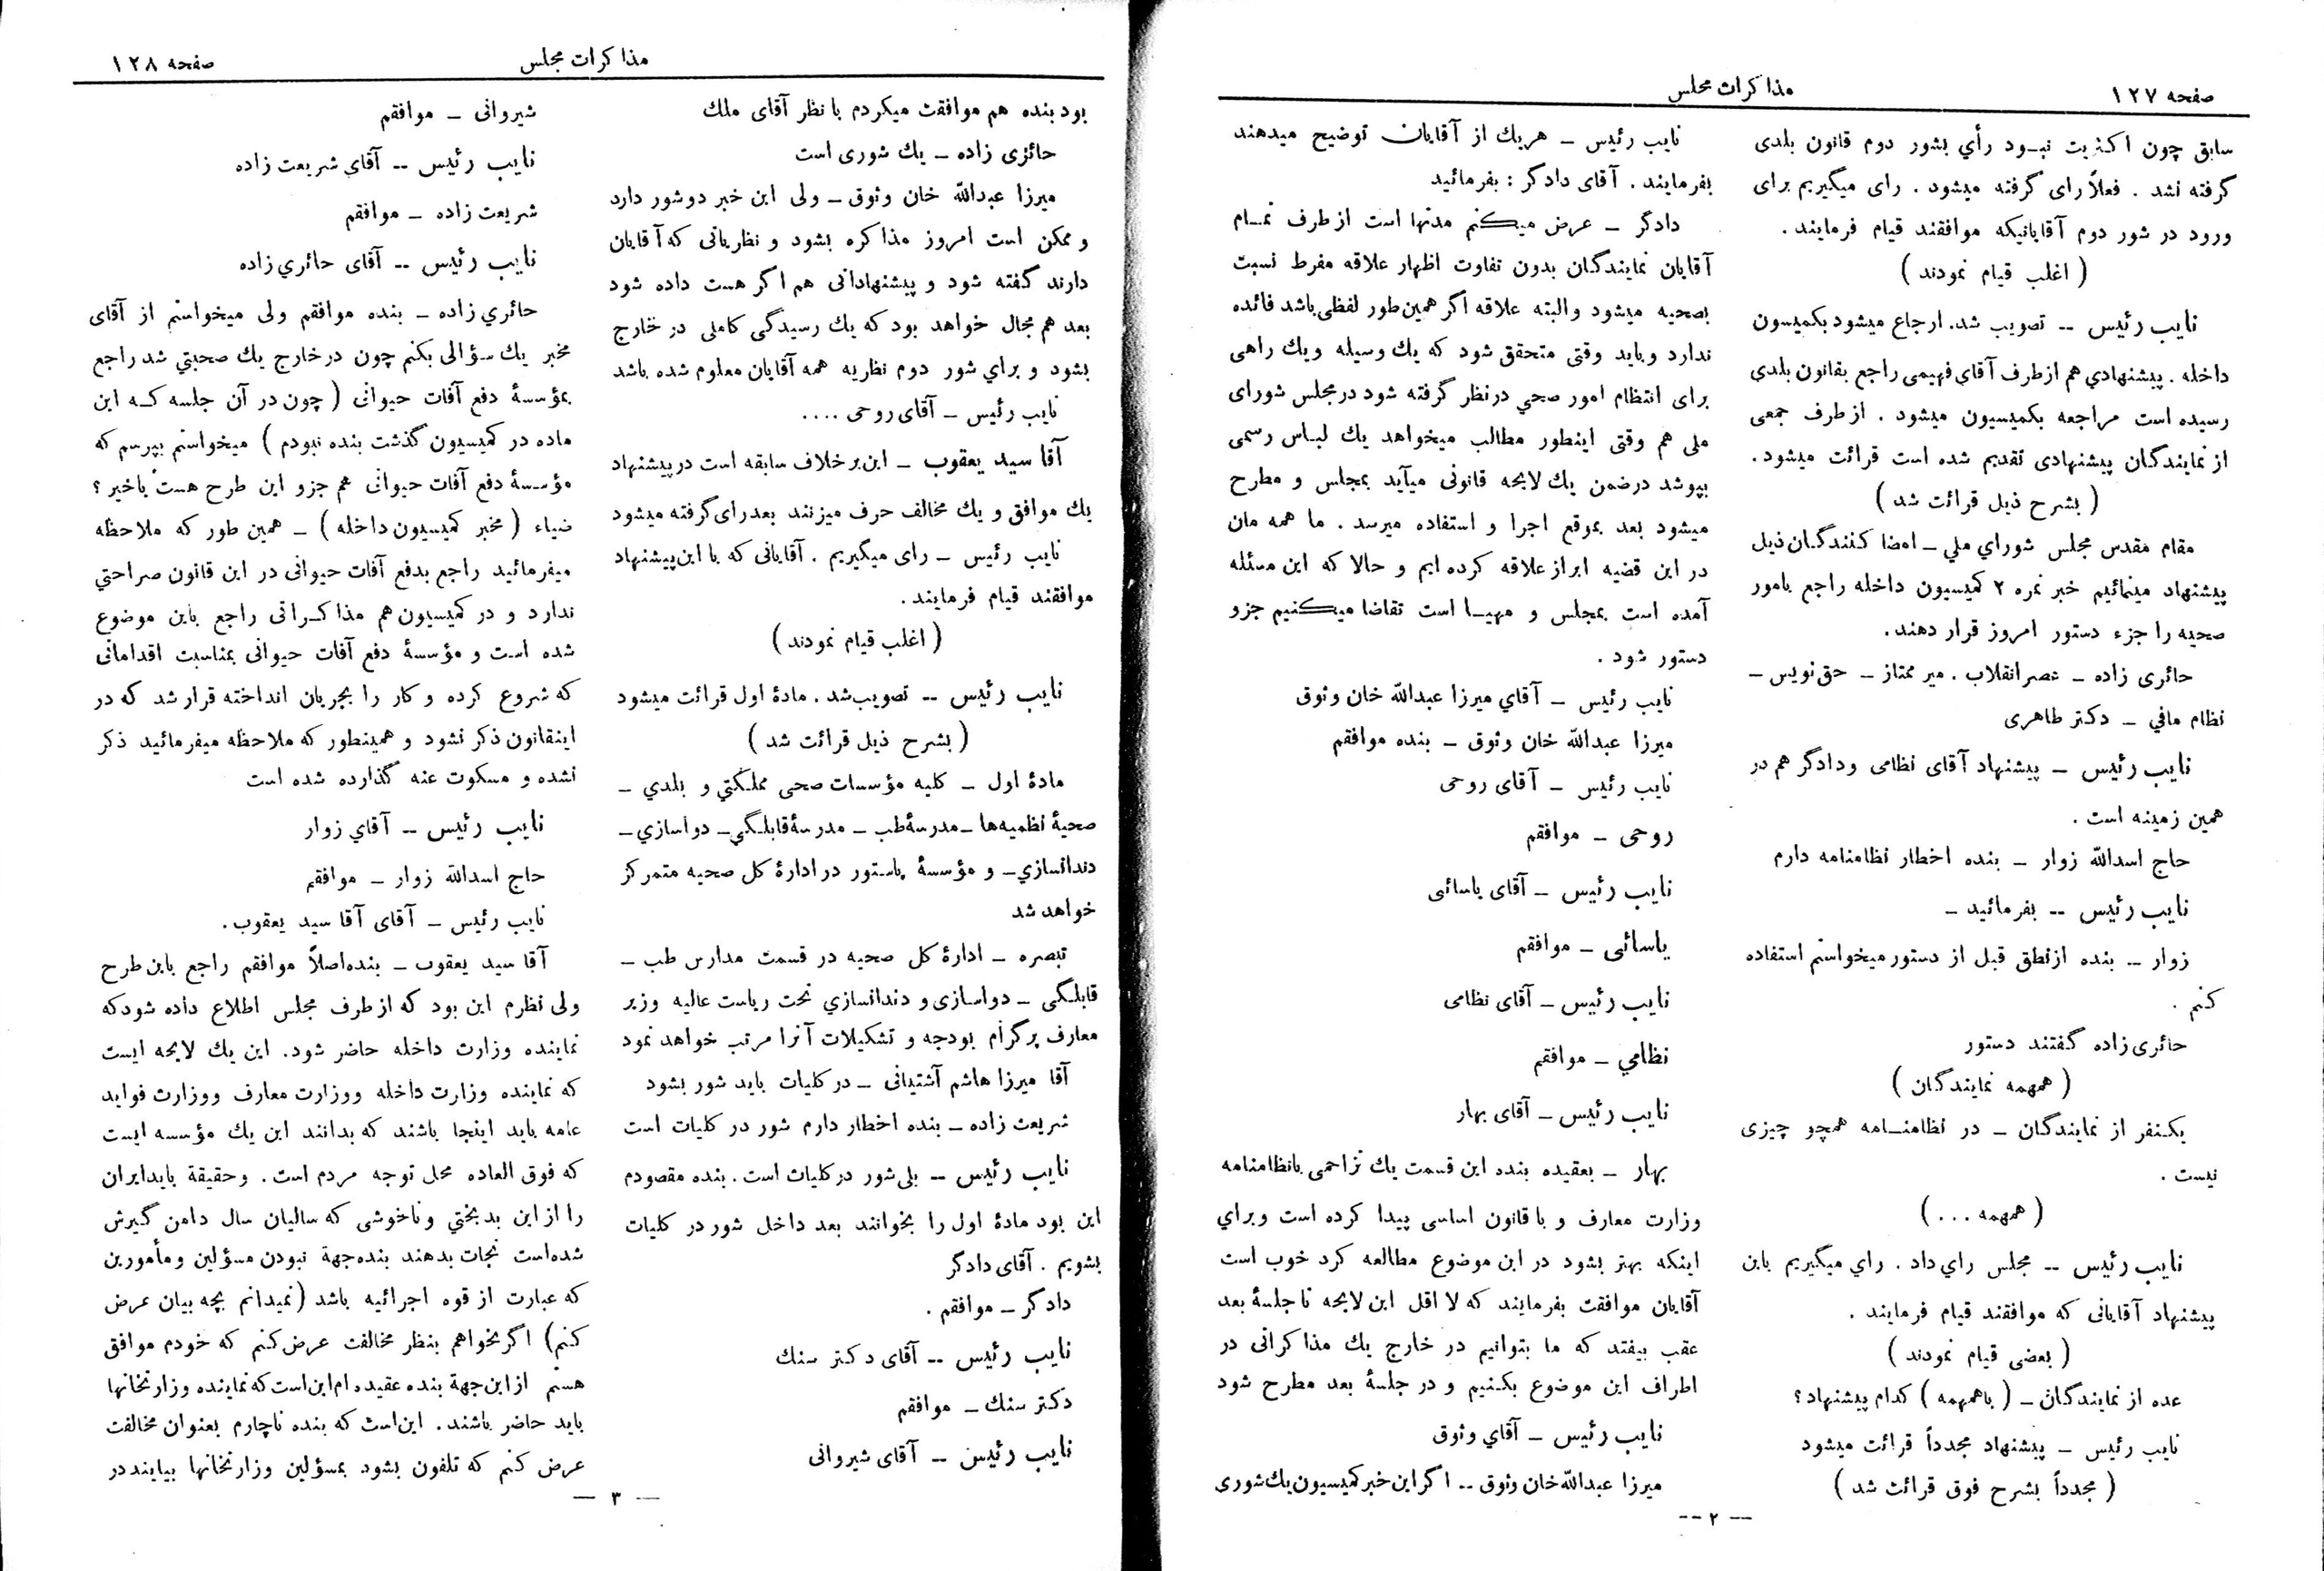 صفحه ۱۲۷
مذاکرات مجلس
سابق چون اکثریت نبود رأي بشور دوم قانون بلدی
گرفته نشد . فعلاً رای گرفته میشود . رای میگیریم برای
ورود در شور دوم آقایانیکه موافقند قیام فرمایند.
( اغلب قیام نمودند )
نایب رئیس -- تصویب شد. ارجاع میشود بکمیسون
داخله . پیشنهادي هم ازطرف آقاي فهیمی راجع بقانون بلدی
رسیده است مراجعه بکمیسیون میشود . از طرف جمعی
از نمایندگان پیشنهادی تقدیم شده است قرائت میشود.
( بشرح ذیل قرائت شد )
مقام مقدس مجلس شوراي ملي ــ امضا کنندگان ذیل
پیشنهاد مینمائیم خبر نمره ۲ کمیسیون داخله راجع بامور
صحیه را جزء دستور امروز قرار دهند.
حائری زاده ــ عصر انقلاب . میر ممتاز ــ حق نویس ــ
نظام مافي ــ دکتر طاهری
نایب رئیس ــ پیشنهاد آقای نظامی و دادگر هم در
همین زمینه است .
حاج اسدالله زوار ــ بنده اخطار نظامنامه دارم
نایب رئیس -- بفرمائید ــ
زوار ــ بنده ازنطق قبل از دستور میخواستم استفاده
کنم .
حائری زاده گفتند دستور
( همهمه نمایندگان )
یکنفر از نمایندگان ــ در نظامنامه همچو چیزی
نیست .
( همهمه ... )
نایب رئیس -- مجلس راي داد . راي میگیریم باین
پیشنهاد آقایانی که موافقند قیام فرمایند .
( بعضی قیام نمودند )
عده از نمایندگان ــ ( باهمهمه ) کدام پیشنهاد؟
نایب رئیس ــ پیشنهاد مجدداً قرائت میشود
( مجدداً بشرح فوق قرائت شد )
نایب رئیس ــ هریك از آقایان توضیح میدهند
بفرمایند . آقای دادگر : بفرمائید
دادگر ــ عرض میکنم مدتها است از طرف تمام
آقایان نمایندگان بدون تفاوت اظهار علاقه مفرط نسبت
بصحیه میشود والبته علاقه اگر همین طور لفظی باشد فائده
ندارد و باید وقتی متحقق شود که یك وسیله ویك راهی
برای انتظام امور صحي درنظر گرفته شود درمجلس شورای
ملی هم وقتی اینطور مطالب میخواهد یك لباس رسمی
بپوشد درضمن یك لایحه قانونی میآید بمجلس و مطرح
میشود بعد بموقع اجرا و استفاده میرسد . ما همه مان
در این قضیه ابراز علاقه کرده ایم و حالا که این مسئله
آمده است بمجلس و مهیا است تقاضا میکنیم جزو
دستور شود .
نایب رئیس ــ آقاي میرزا عبدالله خان وثوق
میرزا عبدالله خان وثوق ــ بنده موافقم
نایب رئیس ــ آقای روحی
روحی ــ موافقم
نایب رئیس ــ آقای یاسائی
یاسائی ــ موافقم
نایب رئیس ــ آقای نظامی
نظامي ــ موافقم
نایب رئیس ــ آقای بهار
بهار ــ بعقیده بنده این قسمت یك تزاحمی بانظامنامه
وزارت معارف و با قانون اساسی پیدا کرده است وبراي
اینکه بهتر بشود در این موضوع مطالعه کرد خوب است
آقایان موافقت بفرمایند که لا اقل این لایحه تا جلسهٔ بعد
عقب بیفتد که ما بتوانیم در خارج یك مذاکراتی در
اطراف این موضوع بکنیم و در جلسهٔ بعد مطرح شود
نایب رئیس ــ آقاي وثوق
میرزا عبدالله خان وثوق -- اگر این خبر کمیسیون یك شوری
-- ۲ --
مذاکرات مجلس
صفحه ۱۲۸
بود بنده هم موافقت میکردم با نظر آقای ملك
حائزی زاده ــ یك شوری است
میرزا عبدالله خان وثوق ــ ولی این خبر دو شور دارد
و ممکن است امروز مذاکره بشود و نظریاتی که آقایان
دارند گفته شود و پیشنهاداتی هم اگر هست داده شود
بعد هم مجال خواهد بود که یك رسیدگی کاملی در خارج
بشود و براي شور دوم نظریه همه آقایان معلوم شده باشد
نایب رئیس ــ آقای روحی ....
آقا سید یعقوب ــ این بر خلاف سابقه است در پیشنهاد
یك موافق و یك مخالف حرف میزنند بعد رای گرفته میشود
نایب رئیس ــ رای میگیریم . آقایانی که با این پیشنهاد
موافقند قیام فرمایند.
( اغلب قیام نمودند )
نایب رئیس -- تصویب شد . مادهٔ اول قرائت میشود
( بشرح ذیل قرائت شد )
مادهٔ اول ــ کلیه مؤسسات صحی مملکتي و بلدي ــ
صحیهٔ نظمیه ها ــ مدرسهٔ طب ــ مدرسهٔ قابلگي ــ دواسازي ــ
دندانسازي ــ و مؤسسهٔ پاستور در ادارهٔ کل صحیه متمرکز
خواهد شد
تبصره ــ ادارهٔ کل صحیه در قسمت مدارس طب ــ
قابلگی ــ دواسازی و دندانسازي تحت ریاست عالیه وزیر
معارف پرگرام بودجه و تشکیلات آنرا مرتب خواهد نمود
آقا میرزا هاشم آشتیانی ــ در کلیات باید شور بشود
شریعت زاده ــ بنده اخطار دارم شور در کلیات است
نایب رئیس -- بلی شور در کلیات است . بنده مقصودم
این بود مادهٔ اول را بخوانند بعد داخل شور در کلیات
بشویم . آقای دادگر
دادگر ــ موافقم .
نایب رئیس -- آقای دکتر سنك
دکتر سنك ــ موافقم
نایب رئیس -- آقای شیروانی
شیروانی ــ موافقم
نایب رئیس -- آقای شریعت زاده
شریعت زاده ــ موافقم
نایب رئیس -- آقای حائري زاده
حائري زاده ــ بنده موافقم ولی میخواستم از آقای
مخبر یك سؤالی بکنم چون در خارج یك صحبتي شد راجع
بمؤسسهٔ دفع آفات حیوانی ( چون در آن جلسه که این
ماده در کمیسیون گذشت بنده نبودم ) میخواستم بپرسم که
مؤسسهٔ دفع آفات حیوانی هم جزو این طرح هست یاخیر ؟
ضیاء ( مخبر کمیسیون داخله ) ــ همین طور که ملاحظه
میفرمائید راجع بدفع آفات حیوانی در این قانون صراحتي
ندارد و در کمیسیون هم مذاکراتی راجع باین موضوع
شده است و مؤسسهٔ دفع آفات حیوانی بمناسبت اقداماتی
که شروع کرده و کار را بجریان انداخته قرار شد که در
اینقانون ذکر نشود و همینطور که ملاحظه میفرمائید ذکر
نشده و مسکوت عنه گذارده شده است
نایب رئیس -- آقاي زوار
حاج اسدالله زوار ــ موافقم
نایب رئیس ــ آقای آقا سید یعقوب .
آقا سید یعقوب ــ بنده اصلاً موافقم راجع باین طرح
ولی نظرم این بود که از طرف مجلس اطلاع داده شود که
نماینده وزارت داخله حاضر شود. این یك لایحه ایست
که نماینده وزارت داخله ووزارت معارف ووزارت فواید
عامه باید اینجا باشند که بدانند این یك مؤسسه ایست
که فوق العاده محل توجه مردم است. وحقیقة باید ایران
را از این بدبختي وناخوشی که سالیان سال دامن گیرش
شده است نجات بدهند بنده جهة نبودن مسؤلین و مأمورین
که عبارت از قوه اجرائیه باشد (نمیدانم بچه بیان عرض
کنم) اگر بخواهم بنظر مخالفت عرض کنم که خودم موافق
هستم از این جهة بنده عقیده ام این است که نماینده وزارتخانها
باید حاضر باشند. این است که بنده ناچارم بعنوان مخالفت
عرض کنم که تلفون بشود بمسؤلین وزارتخانها بیایند در
— ۳ —